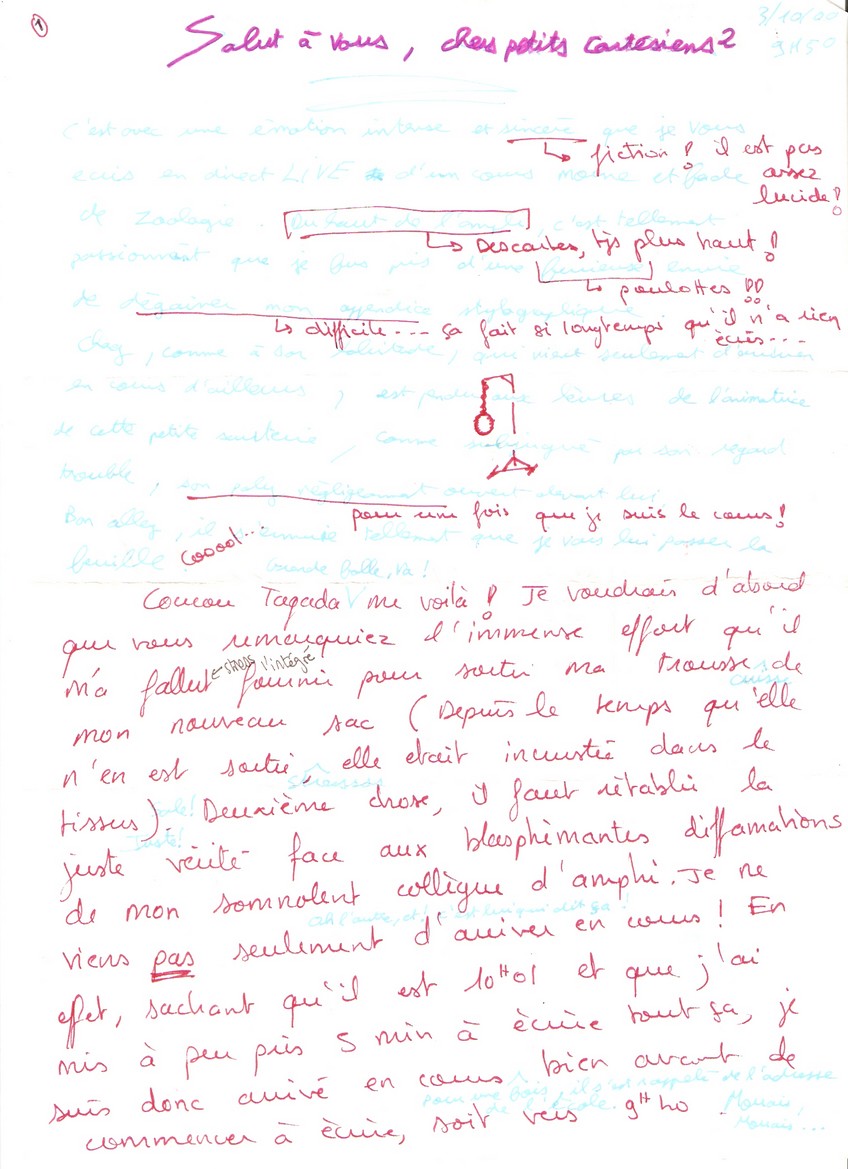 1
3/10/00
9H50
Salut à vous, chers petits cartésiens 2
C'est avec une émotion intense et sincère que je vous
↳ fiction ! il est pas
assez
lucide !
écris en direct LIVE d'un cours morne et fade
de zoologie. Du haut de l'amphi, c'est tellement
↳ Descartes, tjs plus haut !
passionnant que je fus pris d'une furieuse envie
↳ poulottes !!
de dégainer mon appendice stylographique
↳ difficile... ça fait si longtemps qu'il n'a rien
écris...
Chag, comme à son habitude, qui vient seulement d'arriver
en cours d'ailleurs, est pendu aux lèvres de l'animatrice
de cette petite sauterie, comme subjugué par son regard
trouble, son poly négligemment ouvert devant lui.
pour une fois que je suis le cours !
Bon allez, il s'ennuie tellement que je vais lui passer la
feuille !
Cooool...
Grande folle, va !
Coucou Tagada V me voilà ! Je voudrais d'abord
que vous remarquiez l'immense effort qu'il
m'a fallut fournir pour sortir ma trousse de
← stress l'intégré
mon nouveau sac (Depuis le temps qu'elle
n'en est sortie, elle était incrustée dans le
tissus). Deuxième chose, il faut rétablir la
juste vérité face aux blasphèmantes diffamations
de mon somnolent collègue d'amphi. Je ne
ah l'autre, et ! c'est lui qui dit ça !
viens pas seulement d'arriver en cours ! En
effet, sachant qu'il est 10H01 et que j'ai
mis à peu près 5 min à écrire tout ça, je
suis donc arrivé en cours bien avant de
pour une fois, il s'est rappelé de l'adresse
de l'école.
commencer à écrire, soit vers 9H40.
Mouais,
Mouais...